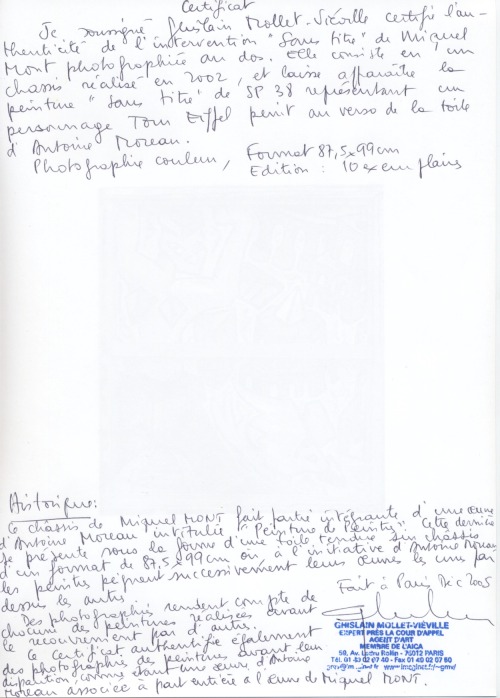 Certificat
Je soussigné Ghislain Mollet-Viéville certifie l'au-
thenticité de l'intervention "Sans titre" de Miquel
Mont photographiée au dos. Elle consiste en un
chassis réalisé en 2002, et laisse apparaître la
peinture "Sans titre" de SP 38 représentant un
personnage Tour Eiffel peint au verso de la toile
d'Antoine Moreau.
Photographie couleur, Format 87,5x99cm
Edition : 10 exemplaires
Historique:
Ce châssis de Miquel MONT fait partie intégrante d'une œuvre
d'Antoine Moreau intitulée "Peinture de Peintres". Cette dernière
se présente sous la forme d'une toile tendue sur châssis
d'un format de 87,5x99cm où à l'initiative d'Antoine Moreau
les peintres peignent successivement leurs œuvres les uns par
dessus les autres.
Fait à Paris Déc 2005
Des photographies rendent compte de
chacune des peintures réalisées avant
le recouvrement par d'autres.
Ce certificat authentifie également
des photographies de peintures avant leur
disparition comme étant une œuvre d'Antoine
Moreau associée à part entière à l'œuvre de Miquel MONT.
GHISLAIN MOLLET-VIÉVILLE
EXPERT PRÈS LA COUR D'APPEL
AGENT D'ART
MEMBRE DE L'AICA
Av. Ledru Rollin - 75012 PARIS
Tél. 01 40 02 07 40 - Fax 01 40 02 07 50